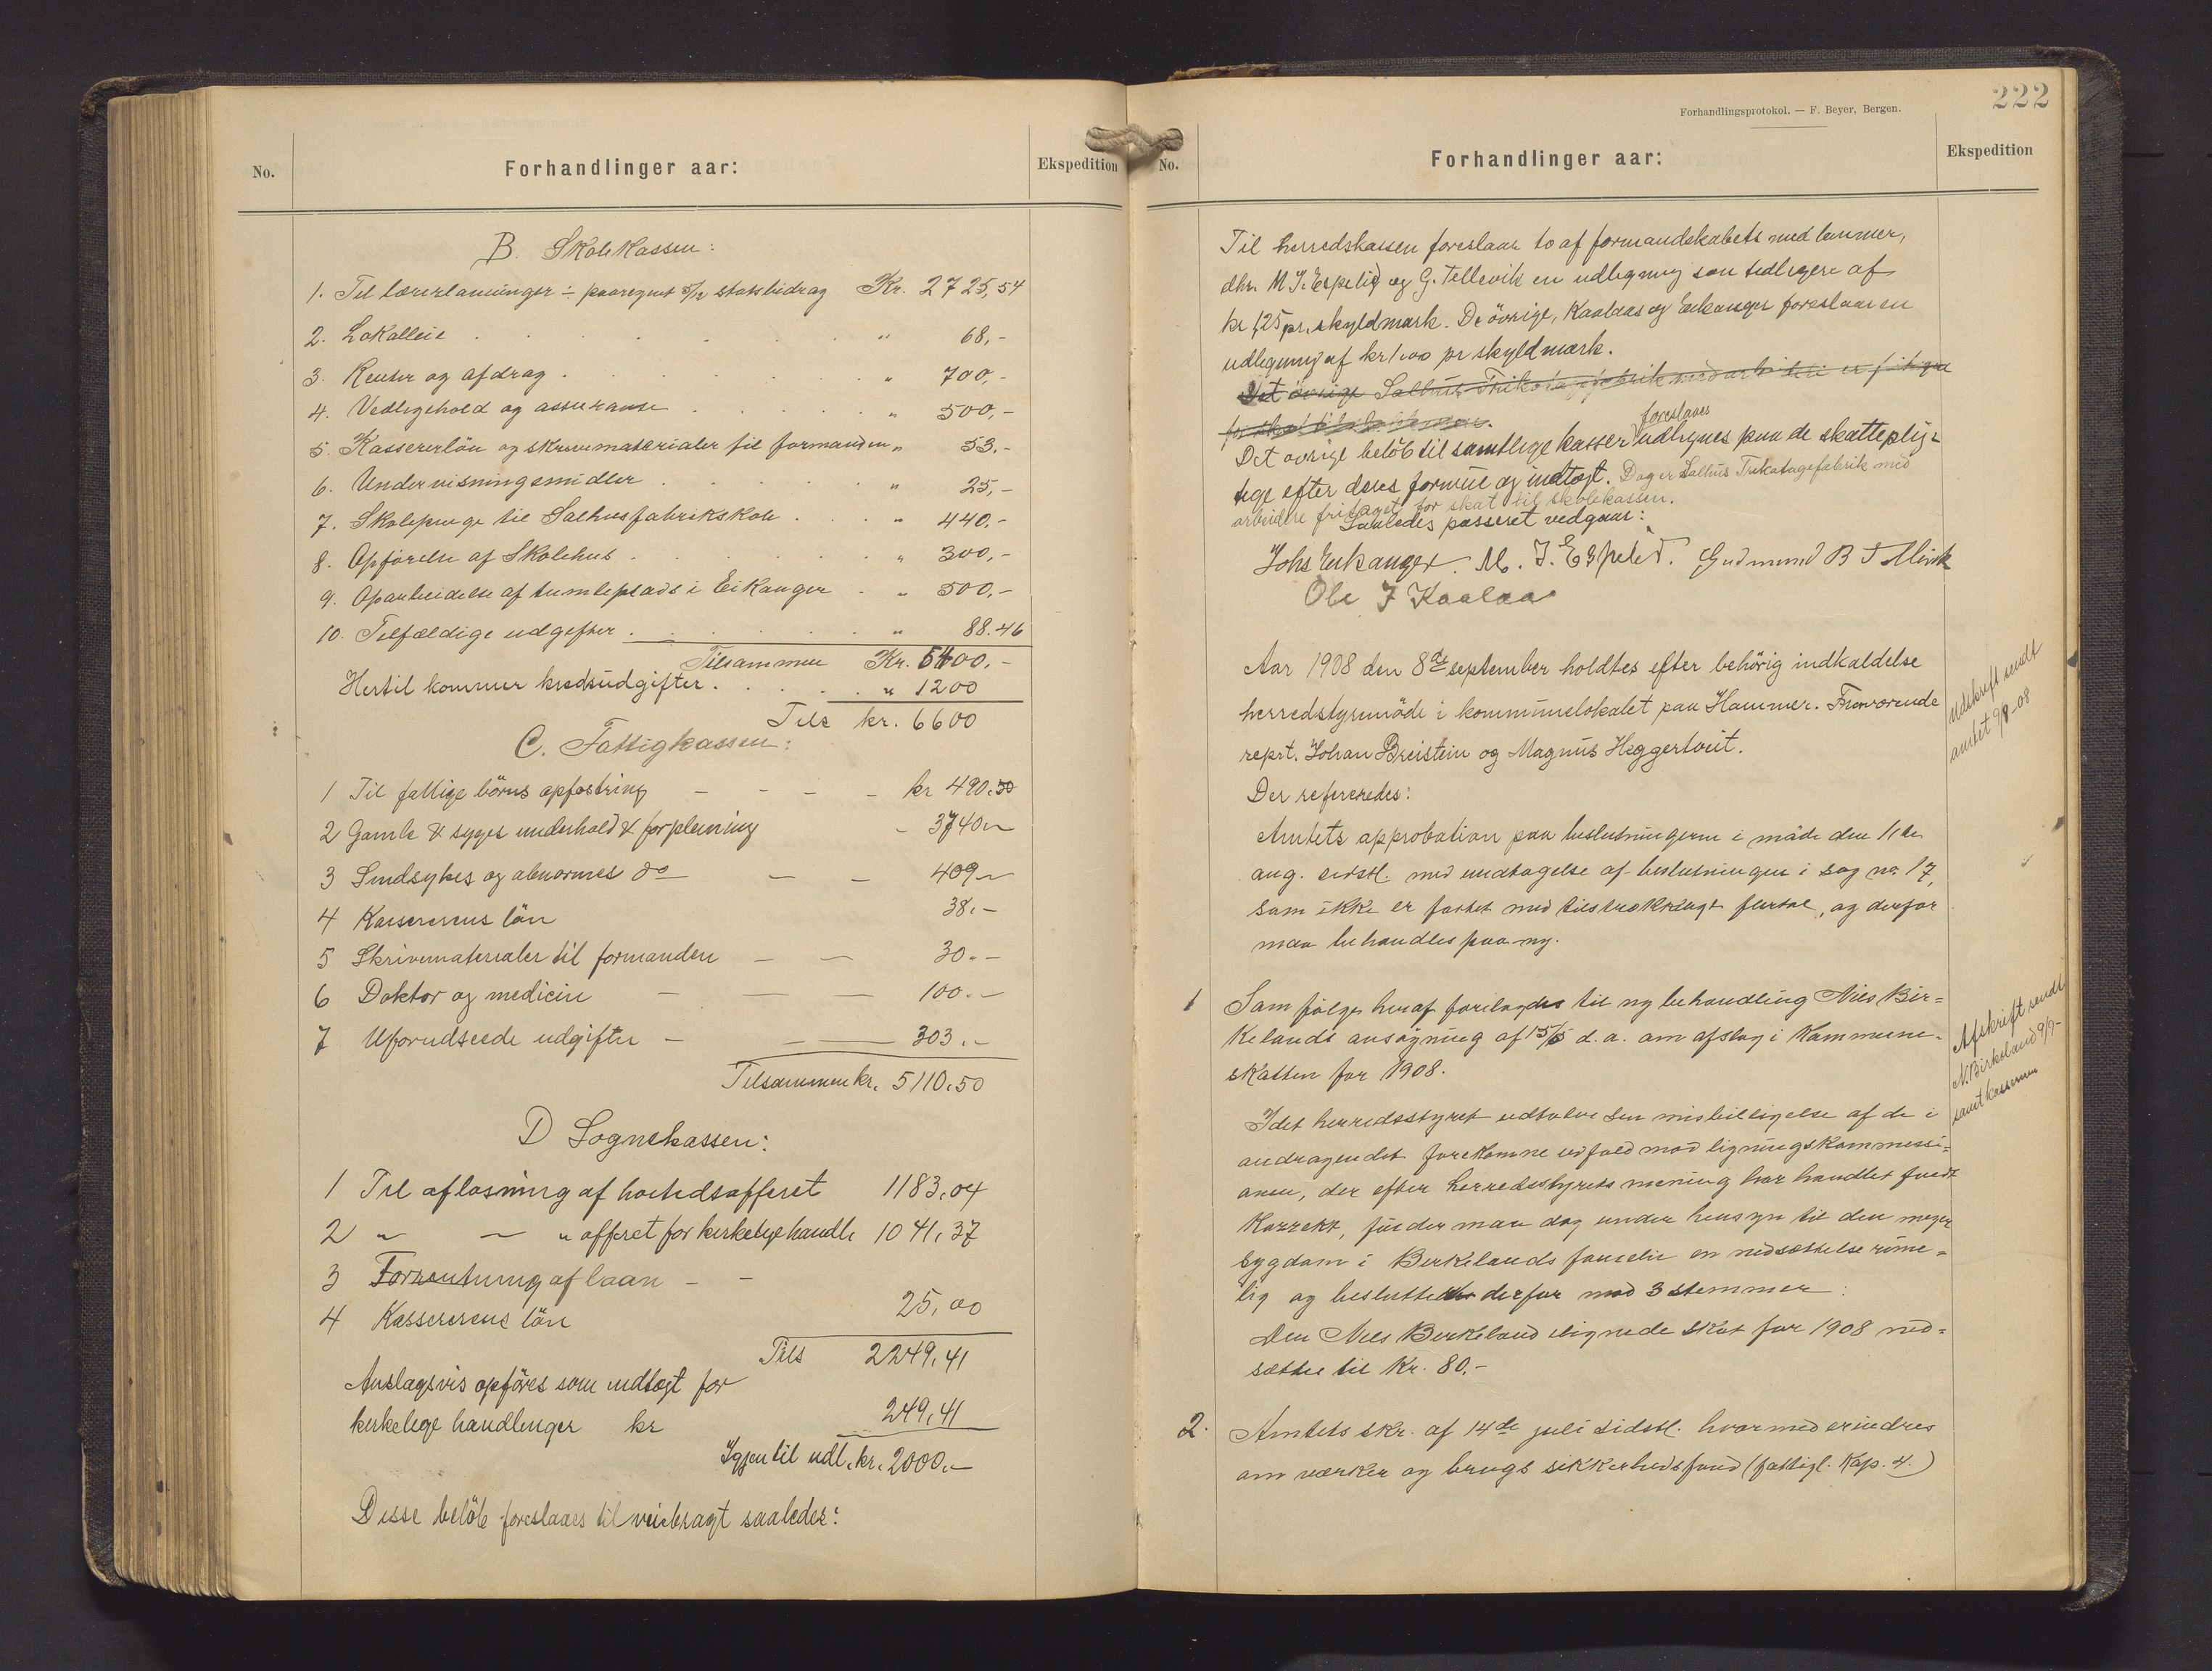 No.
Forhandlinger aar:
Ekspedition
B. Skolekassen:
1. Til lærerlønninger ÷ paaregnet 5/12 statsbidrag Kr. 2725,54
2. Lokalleie . . . . . . " 68,-
3. Renter og afdrag . . . . . " 700,-
4. Vedligehold og assuranse . . . . " 500,-
5. Kassererløn og skrivematerialer til formanden " 53,-
6. Undervisningsmidler . . . . " 25,-
7. Skolepenge til Salhusfabrikskole . . . " 440,-
8. Opførelse af Skolehus . . . . . " 300,-
9. Oparbeidelse af tumleplads i Eikanger . " 500,-
10. Tilfældige udgifter . . . . . " 88.46
Tilsammen Kr. 5400.-
Hertil kommer kredsudgifter . . . . . " 1200
Tils kr. 6600
C. Fattigkassen:
1 Til fattige børns opfostring - - - - kr 490.50
2 Gamle & syges underhold & forpleining - 3740 "
3 Sindsykes og abnormes do - - 409 "
4 Kassererens løn 38.-
5 Skrivematerialer til formanden - - 30.-
6 Doktor og medicin - - - 100.-
7 Uforudseede udgifter - - - 303.-
Tilsammen kr. 5110.50
D Sognekassen:
1 Til afløsning af høitidsofferet 1183,04
2 " - " offeret for kirkelige handlr 1041,37
3 Forrentning af laan - -
4 Kassererens løn 25,00
Tils 2249,41
Anslagsvis opføres som indtægt for
kirkelige handlinger kr 249,41
Igjen til udl. kr. 2000.-
Disse beløb foreslaaes til veiebragt saaledes:
Forhandlingsprotokol. — F. Beyer, Bergen.
222
No.
Forhandlinger aar:
Ekspedition
Til herredskassen foreslaar to af formandskabets medlemmer,
dhr. M. J. Espelid og G. Tellevik en udligning som tidligere af
kr 1,25 pr. skyldmark. De øvrige, Kaalaas og Eikanger foreslaar en
udligning af kr 1.00 pr skyldmark.
Det øvrige Salhus Trikotagefabrik med arbeidere er fritagne
for skat til skolekassen.
foreslaaes
Det øvrige beløb til samtlige kasser udlignes paa de skatteplig-
tige efter deres formue og indtægt. Dog er Salhus Trikotagefabrik med
arbeidere fritaget for skat til skolekassen.
Saaledes passeret vedgaar:
Johs Eikanger. M. J. Espelid. Gudmund B T Alvik
Ole J Kaalaas
Aar 1908 den 8de september holdtes efter behørig indkaldelse
herredstyremøde i kommunelokalet paa Hammer. Fraværende
reprt. Johan Breistein og Magnus Heggertveit.
Udskrift sendt
amtet 9/9-08
Der refereredes:
Amtets approbation paa beslutningerne i møde den 11te
aug. sidstl. med undtagelse af beslutningen i sag no. 17,
som ikke er fattet med tilstrækkeligt flertal, og derfor
maa behandles paa ny.
1 Som følge heraf forelagdes til ny behandling Nils Bir=
kelands ansøgning af 15/5 d.a. om afslag i kommune-
skatten for 1908.
Afskrift sendt
N. Birkeland 9/9-
samt kassereren
Idet herredsstyret udtaler sin misbilligelse af de i
andragendet forekomne udfald mod ligningskommissi=
onen, der efter herredsstyrets mening har handlet fuldt
korrekt, finder man dog under hensyn til den megen
sygdom i Birkelands familie en nedsættelse rime=
lig og besluttedes derfor med 3 stemmer:
Den Nils Birkeland ilignede skat for 1908 ned=
sættes til kr. 80.-
2. Amtets skr. af 14de juli sidstl. hvormed erindres
om værker og brugs sikkerhedsfond (fattigl. Kap. 4.)